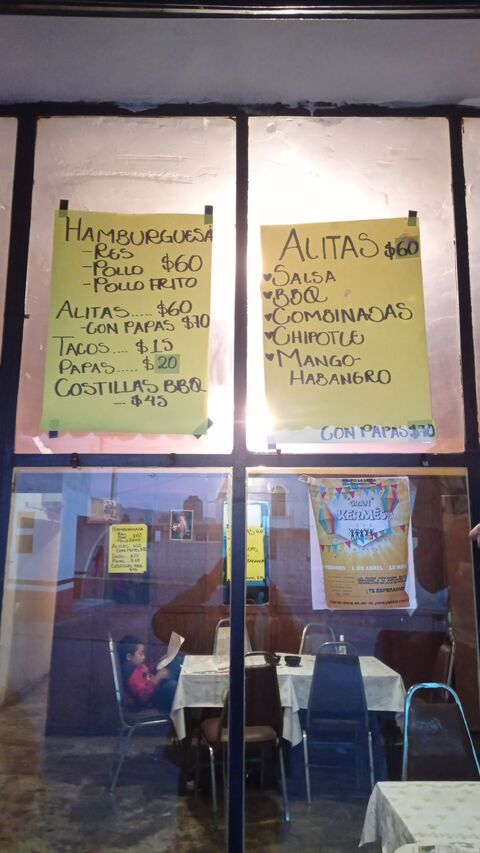 HAMBURGUESA
-RES
-POLLO $60
-POLLO FRITO
ALITAS..... $60
-CON PAPAS $70
TACOS.... $15
PAPAS..... $20
COSTILLAS BBQ
... $45
ALITAS $60
SALSA
BBQ
COMBINADAS
CHIPOTLE
MANGO-
HABANERO
CON PAPAS $70
GRAN
KERMÉS
¡TE ESPERAMOS!
HAMBURGUESA